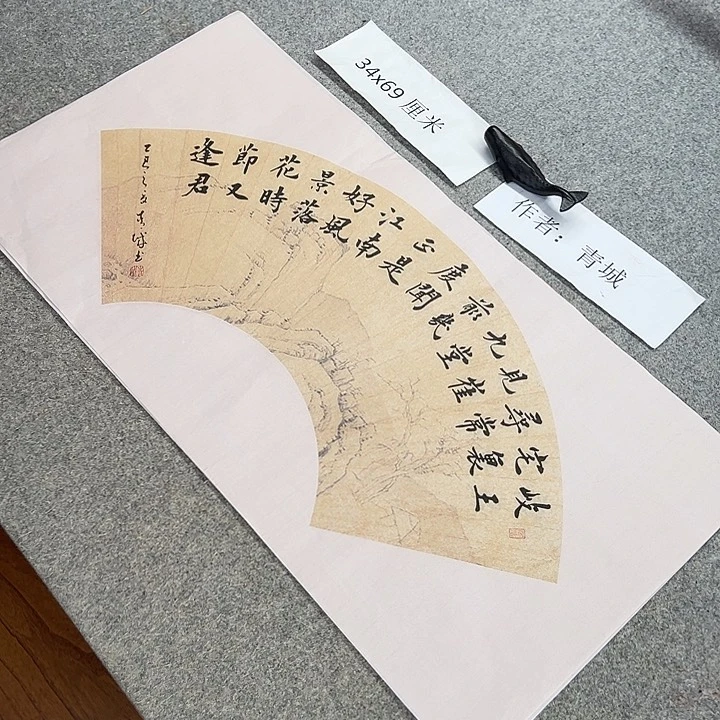 34x69 厘米
作者：青城
岐王
宅裏
尋常
見崔
九堂
前幾
度聞
正是
江南
好風
景落
花時
節又
逢君
乙巳之夏青城书